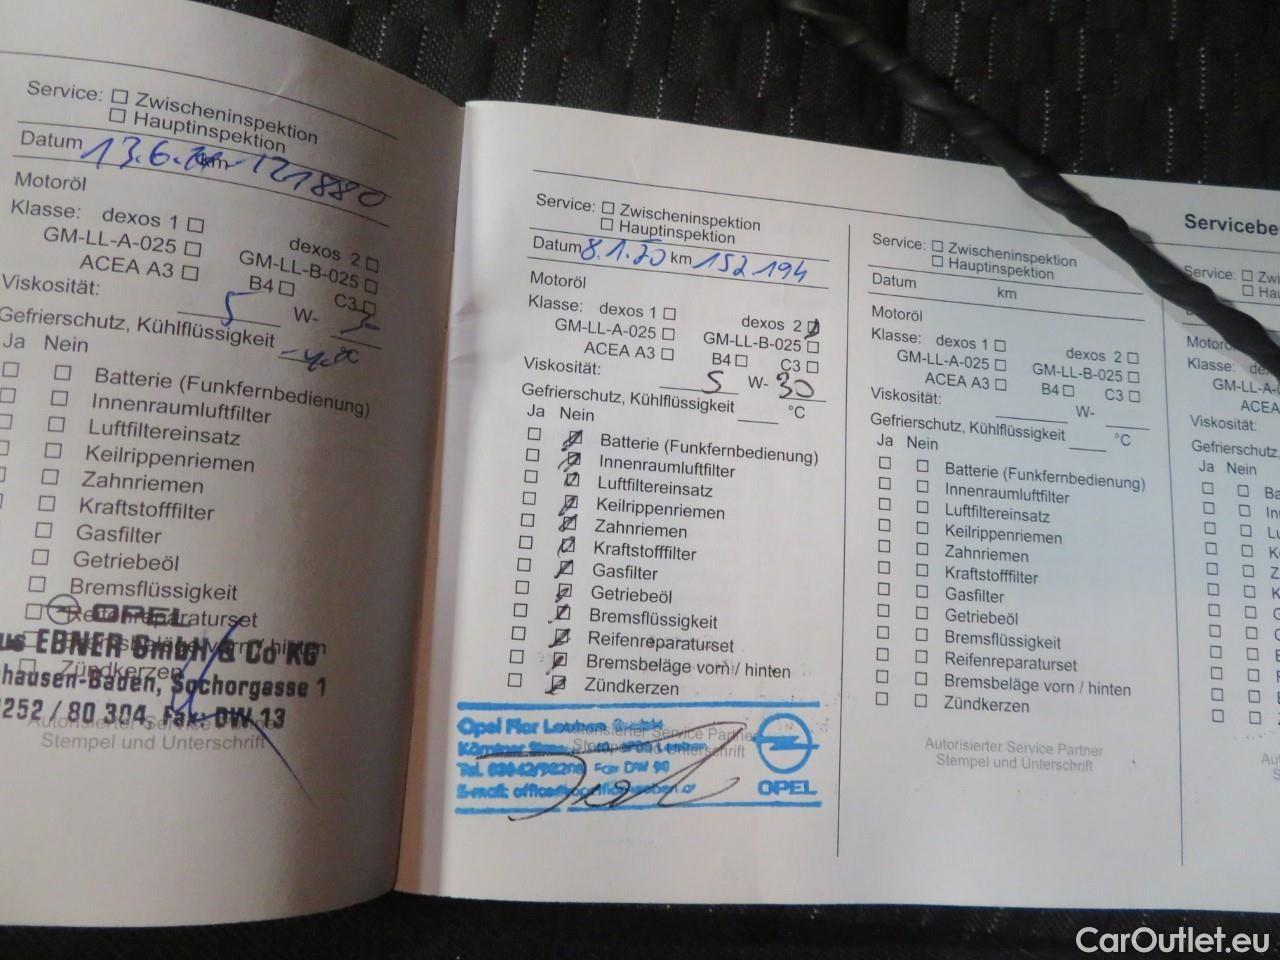 Service: ☐ Zwischeninspektion
☐ Hauptinspektion
Datum 13.6. km 121880
Motoröl
Klasse: dexos 1 ☐ dexos 2 ☐
GM-LL-A-025 ☐ GM-LL-B-025 ☐
ACEA A3 ☐ B4 ☐ C3 ☐
Viskosität: 5 W-
Gefrierschutz, Kühlflüssigkeit
Ja Nein
☐ ☐ Batterie (Funkfernbedienung)
☐ ☐ Innenraumluftfilter
☐ ☐ Luftfiltereinsatz
☐ ☐ Keilrippenriemen
☐ ☐ Zahnriemen
☐ ☐ Kraftstofffilter
☐ Gasfilter
☐ Getriebeöl
☐ Bremsflüssigkeit
☐ Reifenreparaturset
OPEL
EBNER GmbH & Co KG
vorn / hinten
☐ Zündkerzen
hausen-Baden, Sochorgasse 1
252 / 80 304, Fax: DW 13
Autorisierter Service
Stempel und Unterschrift
Service: ☐ Zwischeninspektion
☐ Hauptinspektion
Datum 8.1.20 km 152194
Motoröl
Klasse: dexos 1 ☐ dexos 2 ☑
GM-LL-A-025 ☐ GM-LL-B-025 ☐
ACEA A3 ☐ B4 ☐ C3 ☐
Viskosität: 5 W- 30
Gefrierschutz, Kühlflüssigkeit ____ °C
Ja Nein
☐ ☑ Batterie (Funkfernbedienung)
☐ ☑ Innenraumluftfilter
☐ ☑ Luftfiltereinsatz
☐ ☑ Keilrippenriemen
☐ ☑ Zahnriemen
☐ ☑ Kraftstofffilter
☐ ☑ Gasfilter
☐ ☑ Getriebeöl
☐ ☑ Bremsflüssigkeit
☐ ☑ Reifenreparaturset
☐ ☑ Bremsbeläge vorn / hinten
☐ ☑ Zündkerzen
Opel
Autorisierter Service Partner
Kärntner
Stempel und Unterschrift
Tel. Fax DW
E-mail:
OPEL
Servicebe
Service: ☐ Zwischeninspektion
☐ Hauptinspektion
Datum km
Motoröl
Klasse: dexos 1 ☐ dexos 2 ☐
GM-LL-A-025 ☐ GM-LL-B-025 ☐
ACEA A3 ☐ B4 ☐ C3 ☐
Viskosität: ____ W- ____
Gefrierschutz, Kühlflüssigkeit ____ °C
Ja Nein
☐ ☐ Batterie (Funkfernbedienung)
☐ ☐ Innenraumluftfilter
☐ ☐ Luftfiltereinsatz
☐ ☐ Keilrippenriemen
☐ ☐ Zahnriemen
☐ ☐ Kraftstofffilter
☐ ☐ Gasfilter
☐ ☐ Getriebeöl
☐ ☐ Bremsflüssigkeit
☐ ☐ Reifenreparaturset
☐ ☐ Bremsbeläge vorn / hinten
☐ ☐ Zündkerzen
Autorisierter Service Partner
Stempel und Unterschrift
Service: ☐ Zwi
☐ Ha
Motoröl
Klasse: de
GM-LL-A-
ACEA
Viskosität:
Gefrierschutz,
Ja Nein
CarOutlet.eu